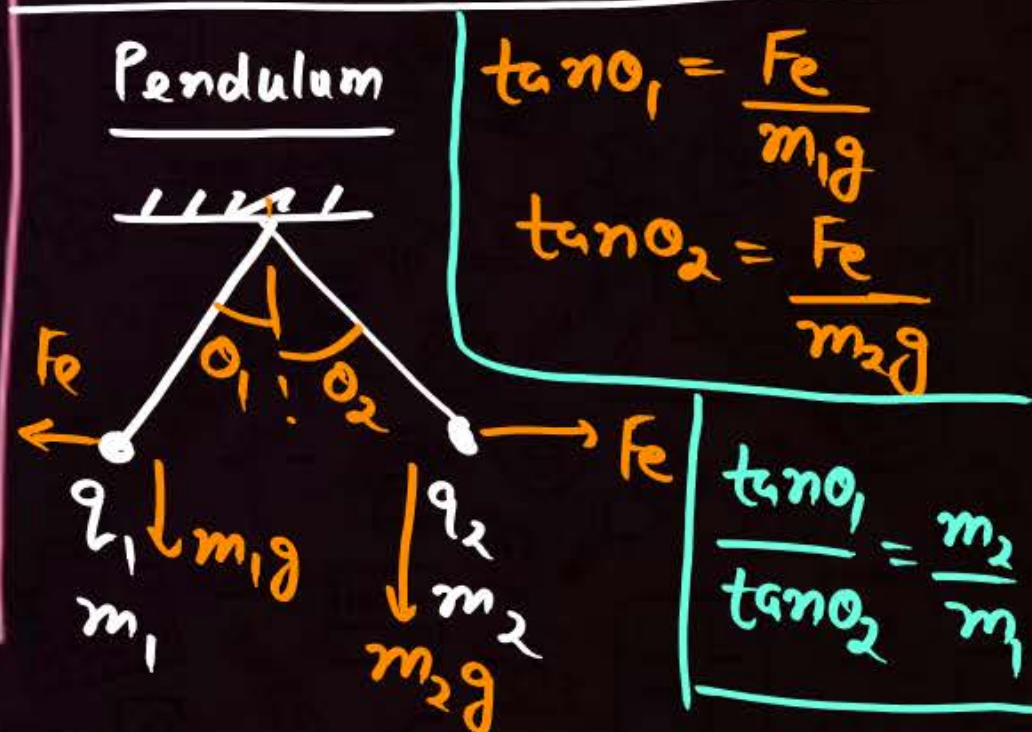 Pendulum
tanθ₁ = Fe / m₁g
tanθ₂ = Fe / m₂g
θ₁ θ₂
Fe
Fe
q₁ m₁g
m₁
q₂
m₂
m₂g
tanθ₁ / tanθ₂ = m₂ / m₁